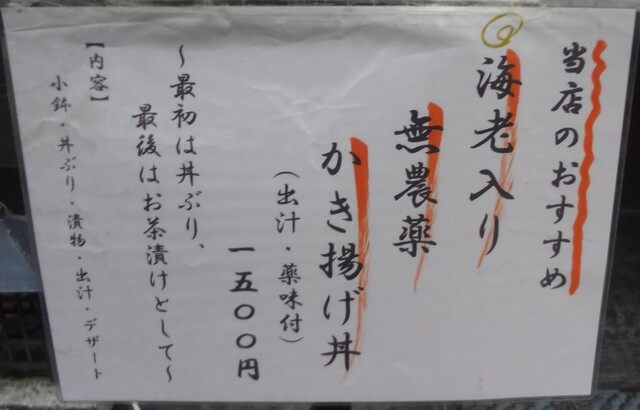 当店のおすすめ
海老入り
無農薬
かき揚げ丼
(出汁・薬味付)
一五〇〇円
~最初は丼ぶり、
最後はお茶漬けとして~
【内容】
小鉢・丼ぶり・漬物・出汁・デザート